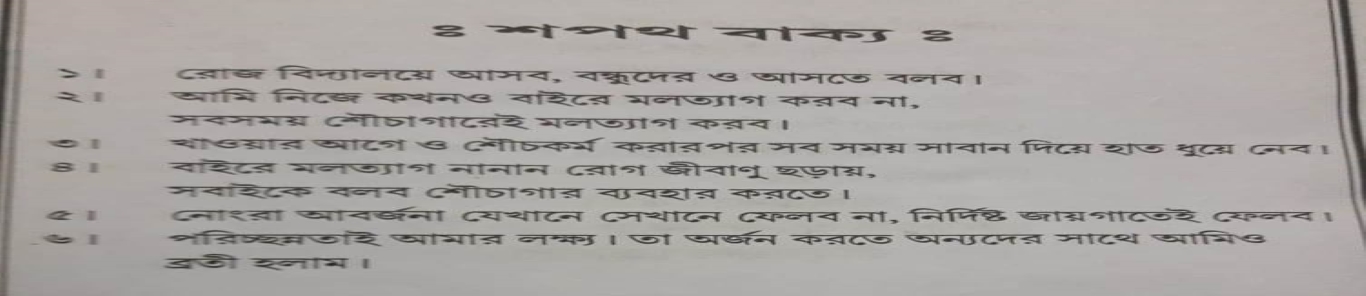 ঃ শপথ বাক্য ঃ
১। রোজ বিদ্যালয়ে আসব, বন্ধুদের ও আসতে বলব।
২। আমি নিজে কখনও বাইরে মলত্যাগ করব না,
সবসময় শৌচাগারেই মলত্যাগ করব।
৩। খাওয়ার আগে ও শৌচকর্ম করারপর সব সময় সাবান দিয়ে হাত ধুয়ে নেব।
৪। বাইরে মলত্যাগ নানান রোগ জীবাণু ছড়ায়,
সবাইকে বলব শৌচাগার ব্যবহার করতে।
৫। নোংরা আবর্জনা যেখানে সেখানে ফেলব না, নির্দিষ্ট জায়গাতেই ফেলব।
৬। পরিচ্ছন্নতাই আমার লক্ষ্য। তা অর্জন করতে অন্যদের সাথে আমিও
ব্রতী হলাম।